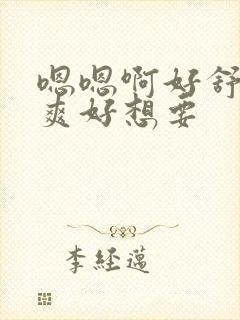 嗯嗯啊好舒
爽好想要
李經邁